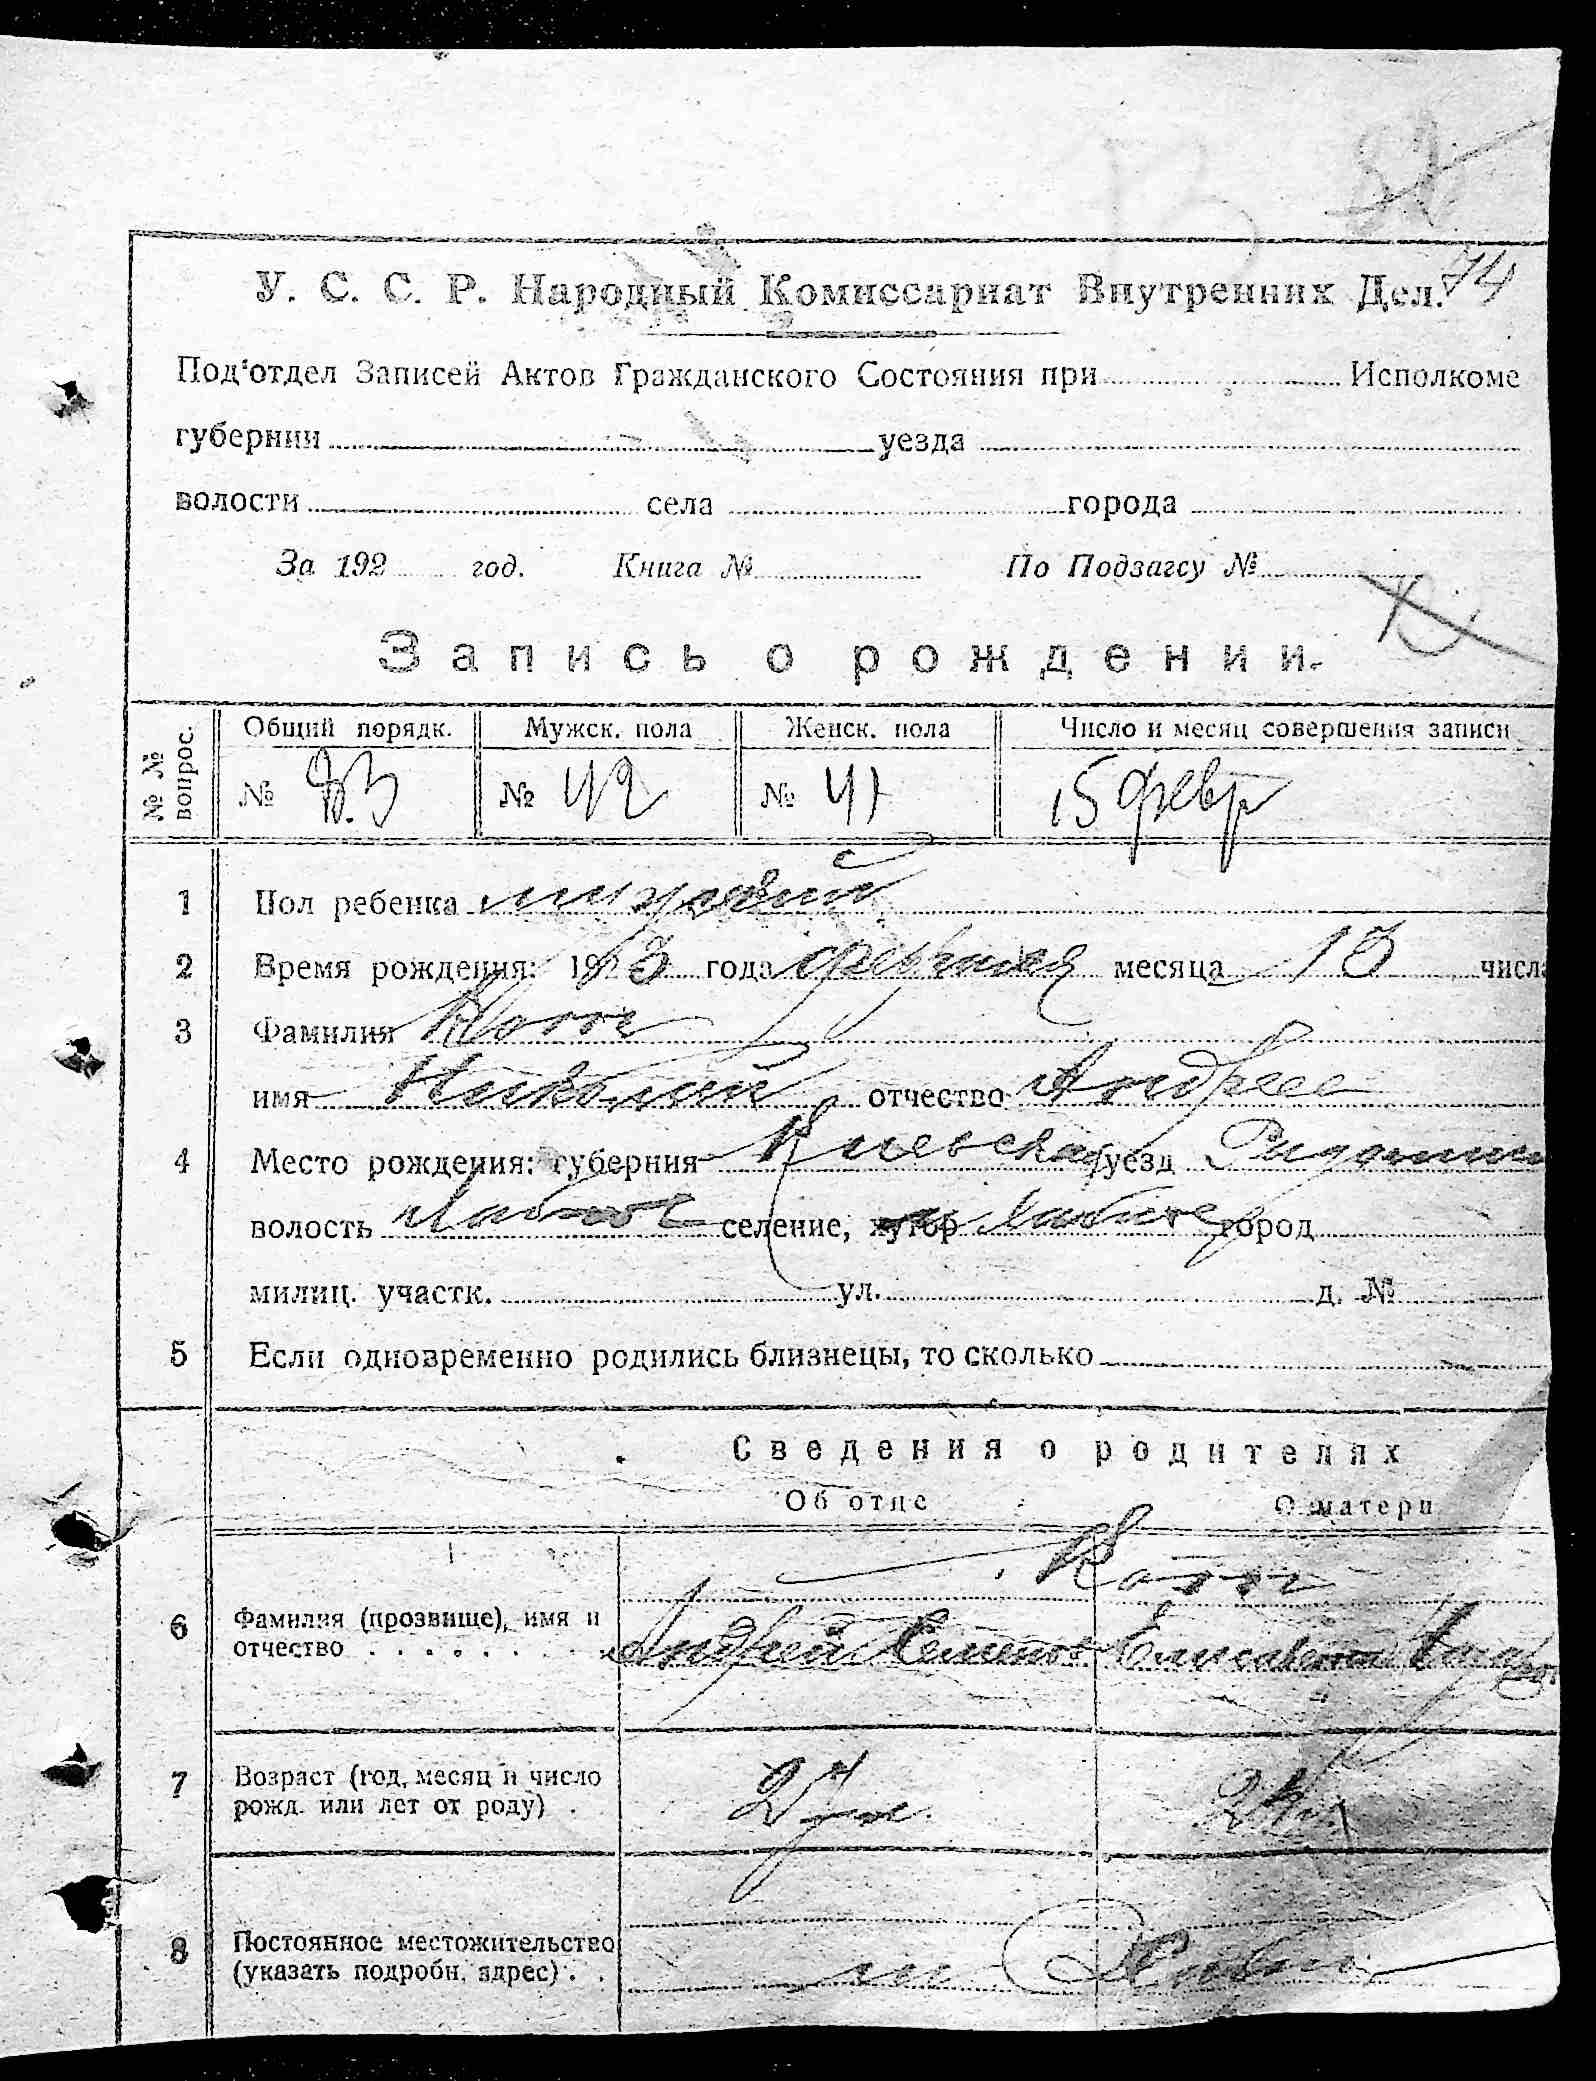 74
У. С. С. Р. Народный Комиссариат Внутренних Дел.
Под'отдел Записей Актов Гражданского Состояния при Исполкоме
губернии уезда
волости села города
За 192 год. Книга № По Подзагсу №
Запись о рождении.
№ № вопрос. Общий порядк. Мужск. пола Женск. пола Число и месяц совершения записи
№ 83 № 42 № 41 15 февр
1 Пол ребенка мужской
2 Время рождения: 1923 года февраля месяца 13 числа
3 Фамилия
имя Николай отчество Андрее
4 Место рождения: губерния Киевская уезд
волость селение, хутор город
милиц. участк. ул. д. №
5 Если одновременно родились близнецы, то сколько
Сведения о родителях
Об отце О матери
6 Фамилия (прозвище), имя и
отчество Андрей Семенов Елисавета
7 Возраст (год, месяц и число
рожд. или лет от роду)
8 Постоянное местожительство
(указать подробн. адрес)